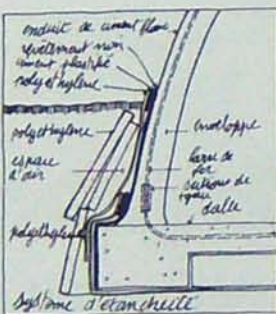 enduit de ciment flam
revêtement non
ciment plastifié
polyethylene
polyethylene
espace
d'air
polyethylene
enveloppe
barre de
fer
sections de
tyau
dalle
système d'étancheité